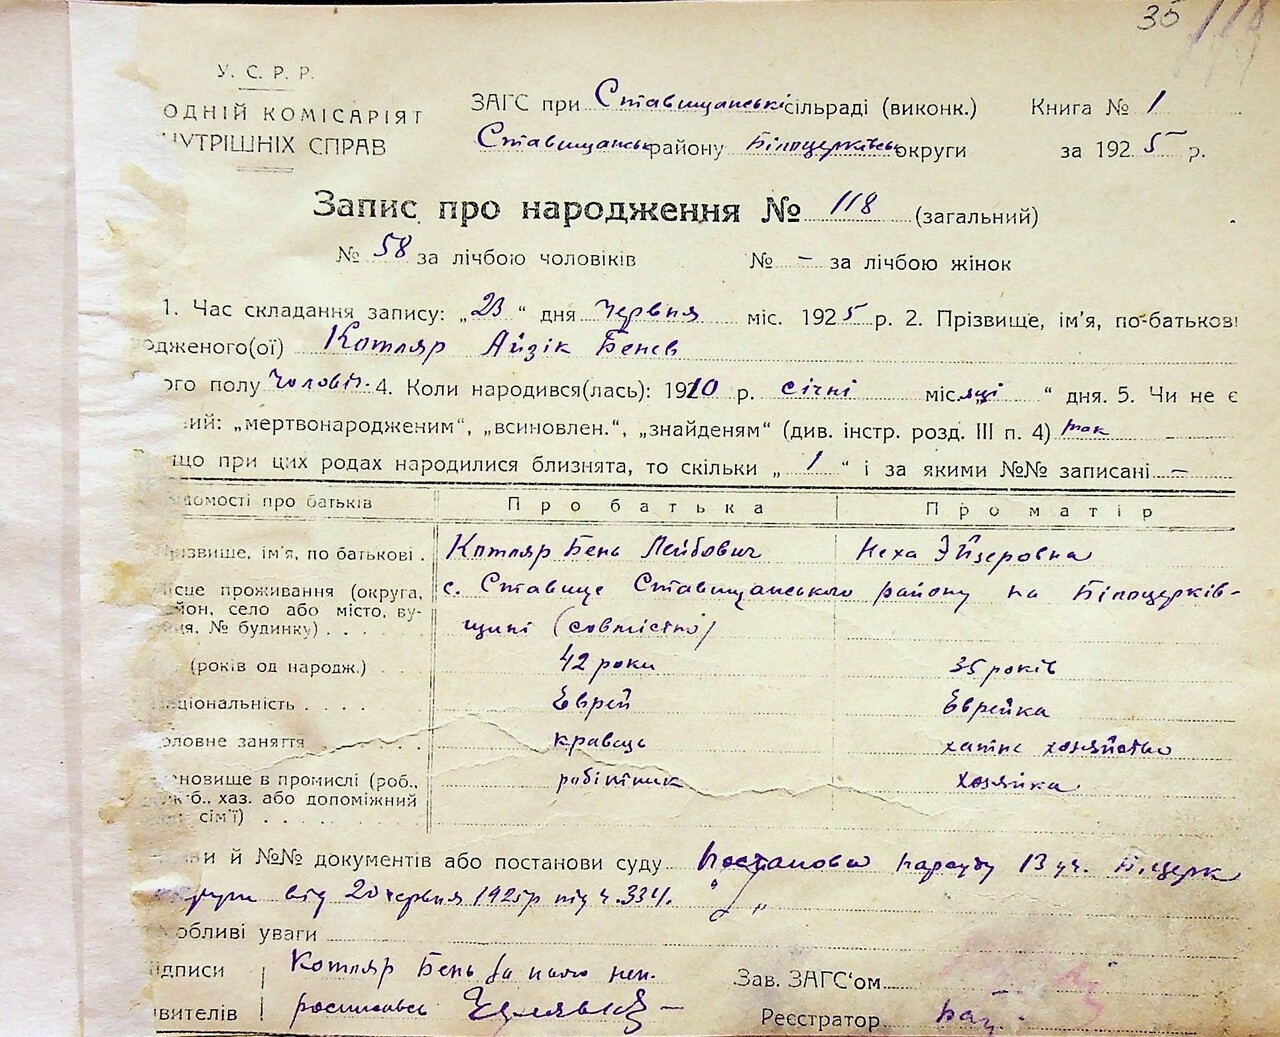 35 118
У. С. Р. Р.
ОДНІЙ КОМІСАРІЯТ
НУТРІШНІХ СПРАВ
ЗАГС при Ставищанські сільраді (виконк.) Книга № 1
Ставищанськ району Білоцерківськ округи за 1925 р.
Запис про народження № 118 (загальний)
№ 58 за лічбою чоловіків № – за лічбою жінок
1. Час складання запису: „23“ дня червня міс. 1925 р. 2. Прізвище, ім'я, по-батькові
одженого(ої) Котляр Айзік Бенев
ого полу чоловіч. 4. Коли народився(лась): 1910 р. січні місяці “ дня. 5. Чи не є
ий: „мертвонародженим“, „всиновлен.“, „знайденям“ (див. інстр. розд. III п. 4) так
що при цих родах народилися близнята, то скільки „ 1 “ і за якими №№ записані –
домості про батьків Про батька Про матір
різвище, ім'я, по батькові. Котляр Бень Лейбович Неха Эйзеровна
ісце проживання (округа, с. Ставище Ставищанського району на Білоцерків-
йон, село або місто, ву-
ця, № будинку) . . . . щині (совмістно)
(років од народж.) 42 роки 35 років
ціональність . . . . Еврей Еврейка
оловне заняття кравець хатнє хозяйство
ановище в промислі (роб., робітник хозяйка
б., хаз. або допоміжний
сім'ї) . . . . . . . .
ви й №№ документів або постанови суду Постанова нарсуду 13 уч. Б.церк
округи від 20 червня 1925 р під ч. 334.
обливі уваги
ідписи Котляр Бень за нього неп.
явителів росписавсь
Зав. ЗАГС'ом
Реєстратор